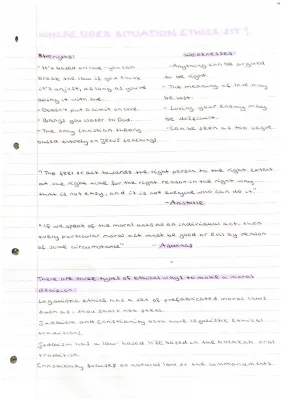 WHERE DOES SITUATION ETHICS SIT?
Strengths:
- It's based on love - you can
break the law if you think
it's unjust, as long as you're
doing it with love.
- Doesn't put a limit on love.
- Brings you closer to God.
- The only Christian theory
based entirely on Jesus' teachings
Weaknesses:
- Anything can be argued
to be right.
- The meaning of love may
be lost.
- Loving your enemy may
be difficult.
- Can be seen as too vague.
"The feel or act towards the right person to the right extent
at the right time for the right reason in the right way -
that is not easy, and it is not everyone who can do it."
- Aristotle
"If we speak of the moral act as an individual act, then
every particular moral act must be good or evil by reason
of some circumstance" - Aquinas
There are three types of ethical ways to make a moral
decision:
Legalistic ethics has a set of prefabricated moral laws
such as, thou shalt not steal.
Judaism and Christianity both have legalistic ethical
traditions.
Judaism has a law-based life based on the halakah oral
tradition.
Christianity focuses on natural law or the commandments.